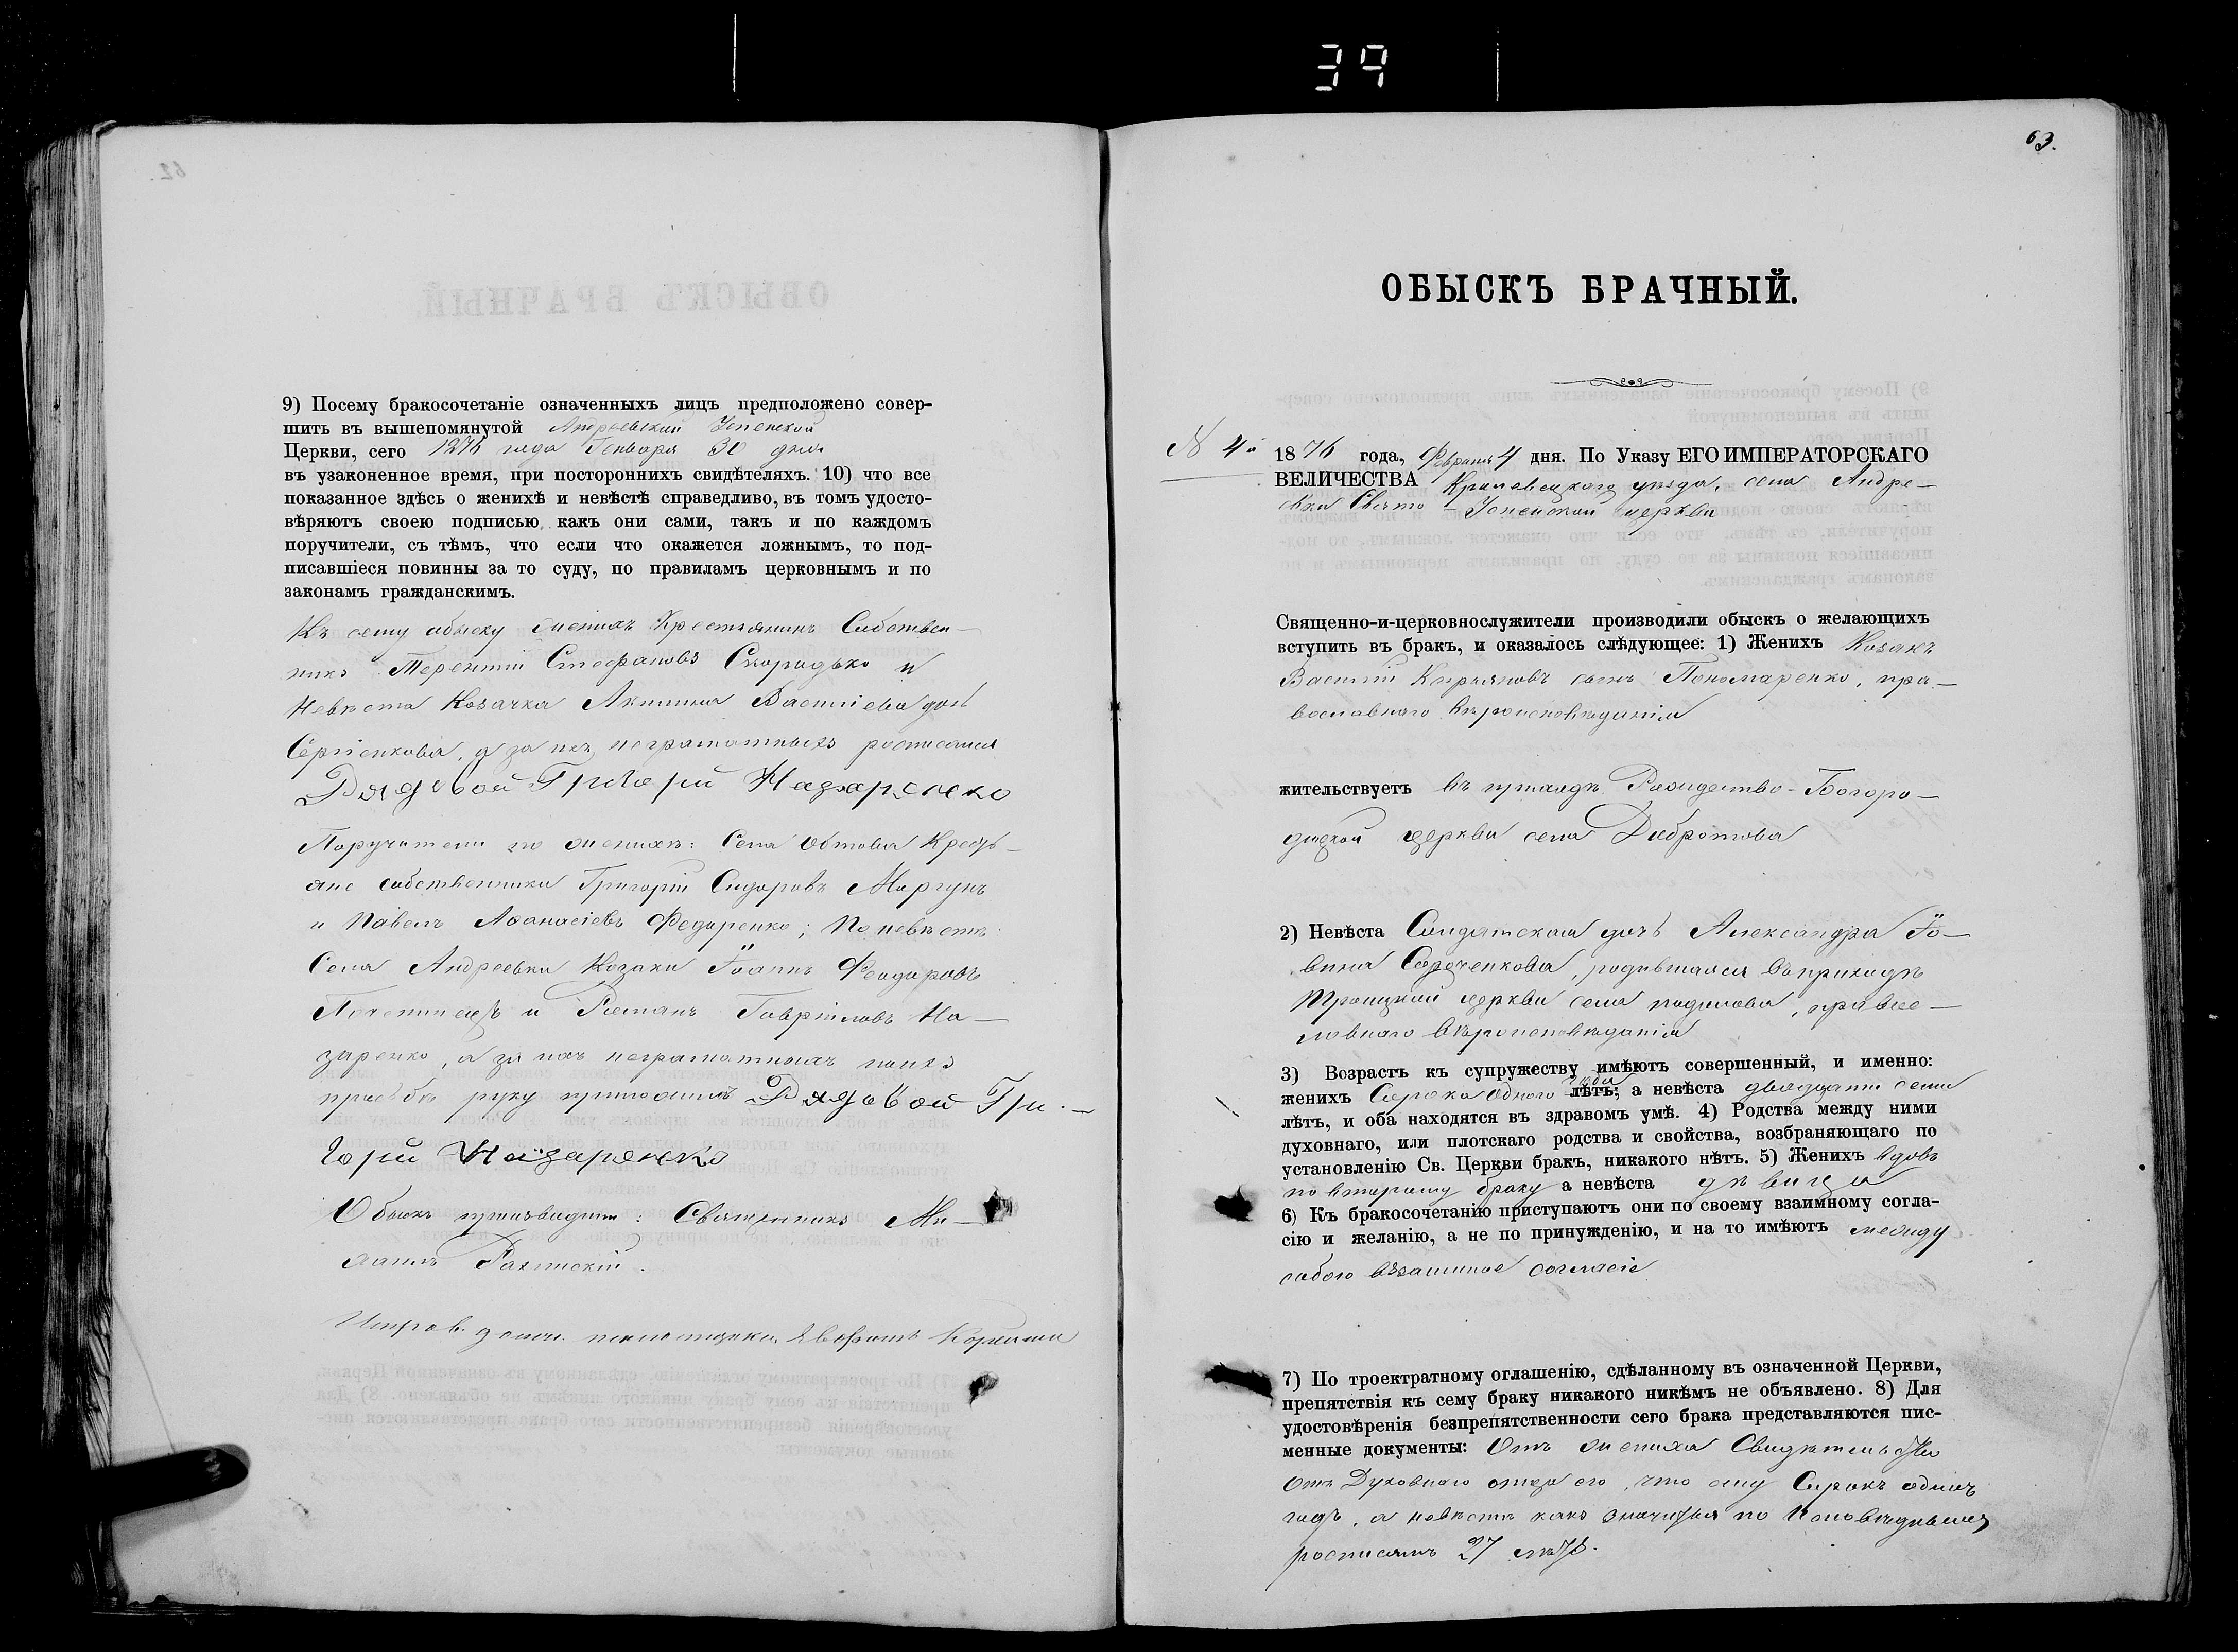 39
9) Посему бракосочетаніе означенныхъ лицъ предположено совер-
шить въ вышепомянутой Андреевской Успенской
Церкви, сего 1876 года Генваря 30 дня
въ узаконенное время, при постороннихъ свидѣтеляхъ. 10) что все
показанное здѣсь о женихѣ и невѣстѣ справедливо, въ томъ удосто-
вѣряютъ своею подписью какъ они сами, такъ и по каждомъ
поручители, съ тѣмъ, что если что окажется ложнымъ, то под-
писавшіеся повинны за то суду, по правиламъ церковнымъ и по
законамъ гражданскимъ.
Къ сему обыску женихъ Крестьянинъ Собствен-
никъ Терентій Стефановъ Скородько и
Невѣста Козачка Акилина Василіева доч
Сергіенкова, а за ихъ неграматныхъ росписался
Рядовой Григорій Назаренко
Поручители по женихѣ: Села Обтова Кресть-
яне собственники Григорій Сидоровъ Моргунъ
и Павелъ Аѳанасіевъ Федоренко; По невѣстѣ:
Села Андреевки Козаки Іоаннъ Феодоровъ
и Романъ Гавріиловъ На-
заренко, а за ихъ неграматныхъ
прозьбѣ руку приложилъ Рядовой Гри-
горій Назаренко
Обыскъ производили: Священникъ Ми-
хаилъ
Исправ. должн. псаломщика Евфимъ
63.
ОБЫСКЪ БРАЧНЫЙ.
N 4й 1876 года, Февраля 4 дня. По Указу ЕГО ИМПЕРАТОРСКАГО
ВЕЛИЧЕСТВА Кролевецкого уѣзда, села Андре-
евки Свято-Успенской церкви
Священно-и-церковнослужители производили обыскъ о желающихъ
вступить въ бракъ, и оказалось слѣдующее: 1) Женихъ Козакъ
Василій Кирьяновъ сынъ Пономаренко, пра-
вославного вѣроисповѣданія
жительствуетъ въ приходѣ Рождество-Богоро-
дицкой церкви села Добротова
2) Невѣста Солдатская дочь Александра Іо-
вина Сороченкова, родившаяся въ приходѣ
Троицкой церкви села Подолова, правос-
лавного вѣроисповѣданія
3) Возрастъ къ супружеству имѣютъ совершенный, и именно:
женихъ Сорока одного года лѣтъ; а невѣста двадцати семи
лѣтъ, и оба находятся въ здравомъ умѣ. 4) Родства между ними
духовнаго, или плотскаго родства и свойства, возбраняющаго по
установленію Св. Церкви бракъ, никакого нѣтъ. 5) Женихъ вдовъ
по второму браку а невѣста дѣвица
6) Къ бракосочетанію приступаютъ они по своему взаимному согла-
сію и желанію, а не по принужденію, и на то имѣютъ между
собою взаимное согласіе
7) По троекратному оглашенію, сдѣланному въ означенной Церкви,
препятствія къ сему браку никакого никѣмъ не объявлено. 8) Для
удостовѣренія безпрепятственности сего брака представляются пис-
менные документы: Отъ жениха Свидѣтельство
отъ Духовного отца его, что ему Сорокъ одинъ
годъ, а невѣстѣ какъ значится по Исповѣднымъ
росписямъ 27 лѣтъ.